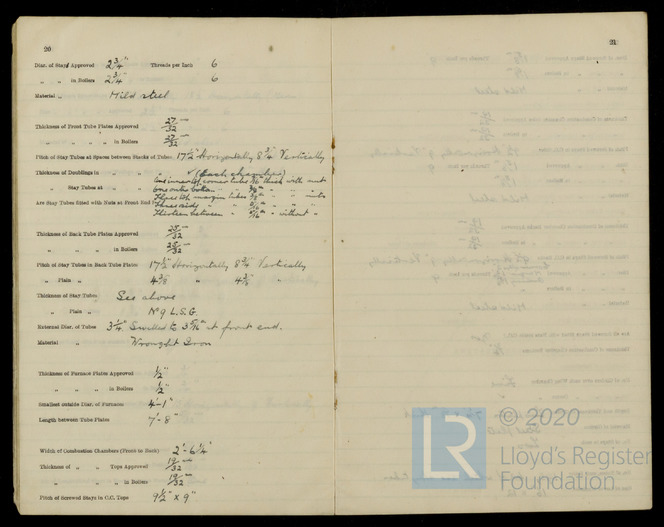 20
Diar. of Stays Approved 2 3/4" Threads per Inch 6
" " in Boilers 2 3/4" 6
Material " Mild steel
Thickness of Front Tube Plates Approved 27/32"
" " " " in Boilers 27/32"
Pitch of Stay Tubes at Spaces between Stacks of Tubes 17 1/2" Horizontally 8 3/4" Vertically
Thickness of Doublings in " (Each chamber)
" Stay Tubes at " "
Are Stay Tubes fitted with Nuts at Front End
Thirteen between " 5/16" " without "
Thickness of Back Tube Plates Approved 25/32"
" " " in Boilers 25/32"
Pitch of Stay Tubes in Back Tube Plates 17 1/2" Horizontally 8 3/4" Vertically
" Plain " 4 3/8 " 4 3/8 "
Thickness of Stay Tubes See above
" Plain " No 9 L.S.G.
External Diar. of Tubes 3 1/4" Swelled to 3 5/16" at front end.
Material " Wrought Iron
Thickness of Furnace Plates Approved 1/2"
" " " in Boilers 1/2"
Smallest outside Diar. of Furnaces 4'-1"
Length between Tube Plates 7'-8"
Width of Combustion Chambers (Front to Back) 2'-6 1/4"
Thickness of " " Tops Approved 19/32"
" " " " in Boilers 19/32"
Pitch of Screwed Stays in C.C. Tops 9 1/2" x 9"
21
© 2020
LR
Lloyd's Register
Foundation